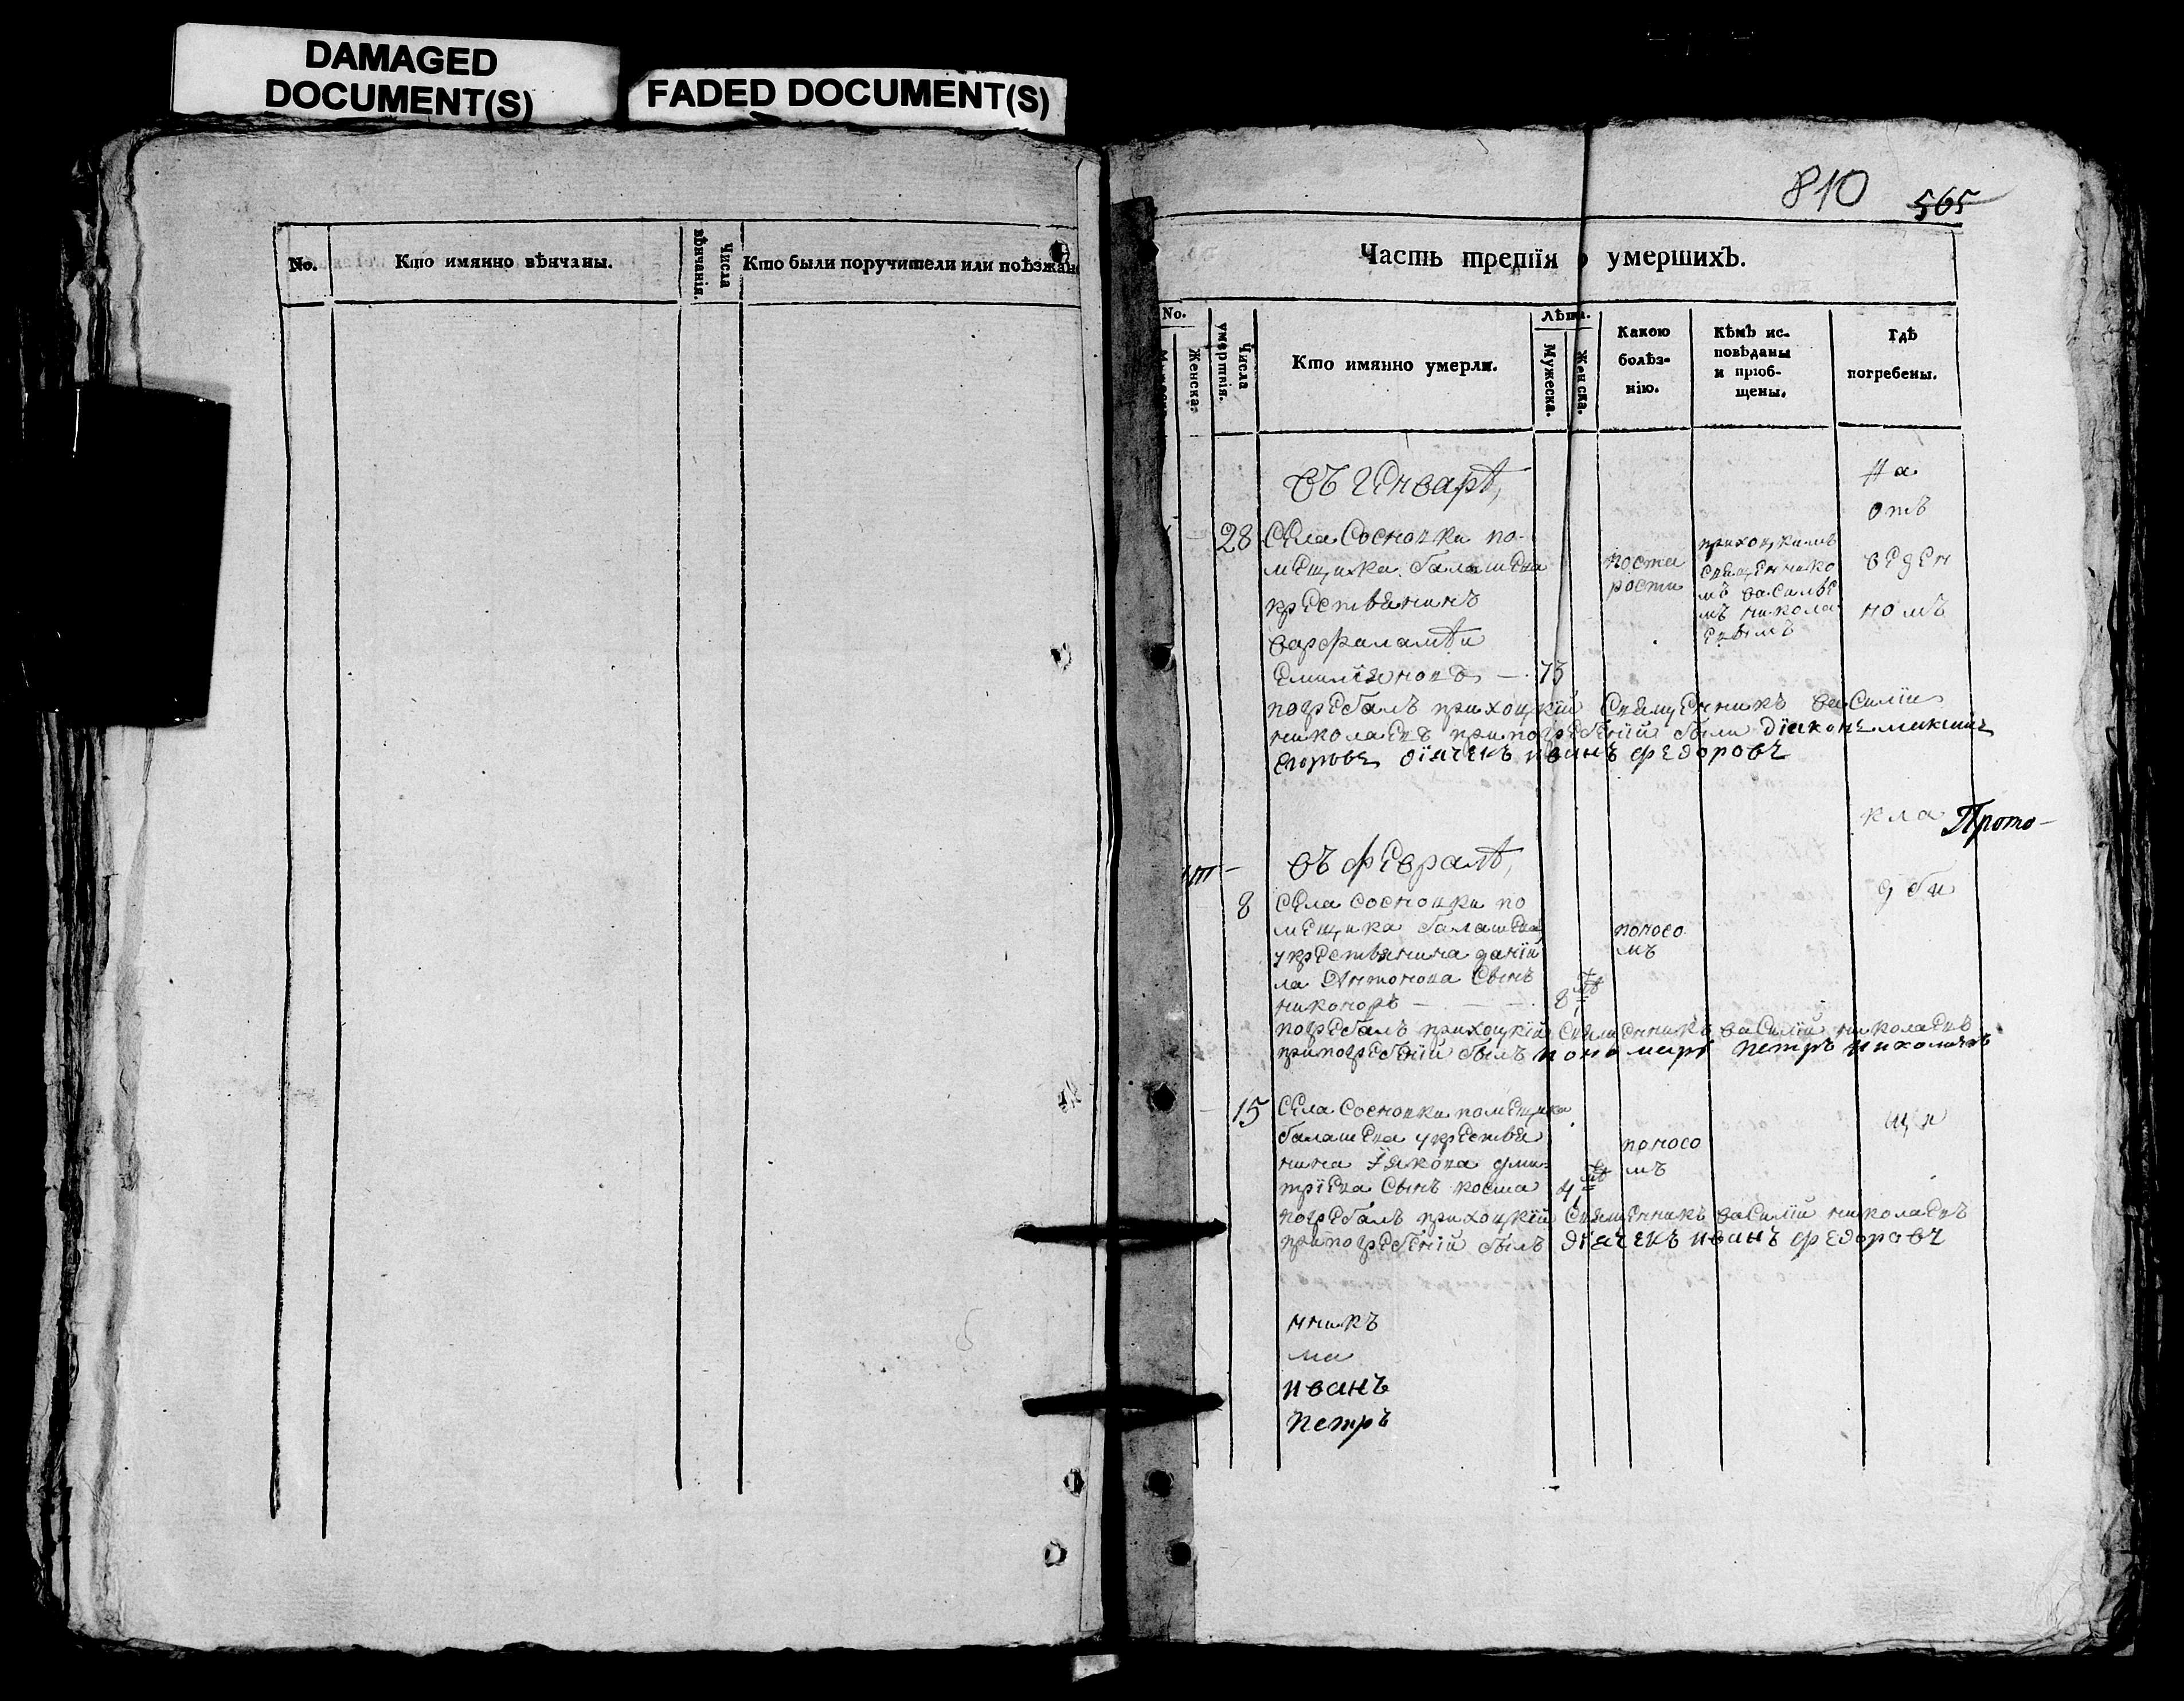 DAMAGED
DOCUMENT(S)
FADED DOCUMENT(S)
No.
Кто имянно вѣнчаны.
Числа
вѣнчанія.
Кто были поручители или поѣзжан
810
565
Часть третїя о умершихъ.
No.
Женска.
Числа
умертвія.
Кто имянно умерли.
Лѣта.
Мужеска.
Женска.
Какою
болѣз-
нію.
Кѣмъ ис-
повѣданы
и пріоб-
щены.
Гдѣ
погребены.
въ Генварѣ
28
села Сосновки по-
мещика балашева
крестьянинъ
варфаламѣи
емилїяновъ — 73
поста
рости
приходцкимъ
священнико
мъ василье
мъ никола
евымъ
На
отв
веден
номъ
погребалъ приходцкїй священникъ василїи
николаевъ при погребенїй были дїаконъ максимъ
егоровъ дїячекъ иванъ федоровъ
кла
Прото-
въ феврале
8
села Сосновки по
мещика балашева
у крестьянина данїй
ла Антонова сынъ
никоноръ — — 8
поносо
мъ
дби
погребалъ приходцкїй священникъ василїй николаевъ
при погребенїй былъ пономарь петръ николаевъ
15
села Сосновки помещика
балашева у крестья
нина Їякова дми-
трїева сынъ косма 4
поносо
мъ
щи
погребалъ приходцкїй священникъ василїй николаевъ
при погребенїй былъ дїячекъ иванъ федоровъ
нникъ
ма
иванъ
петръ